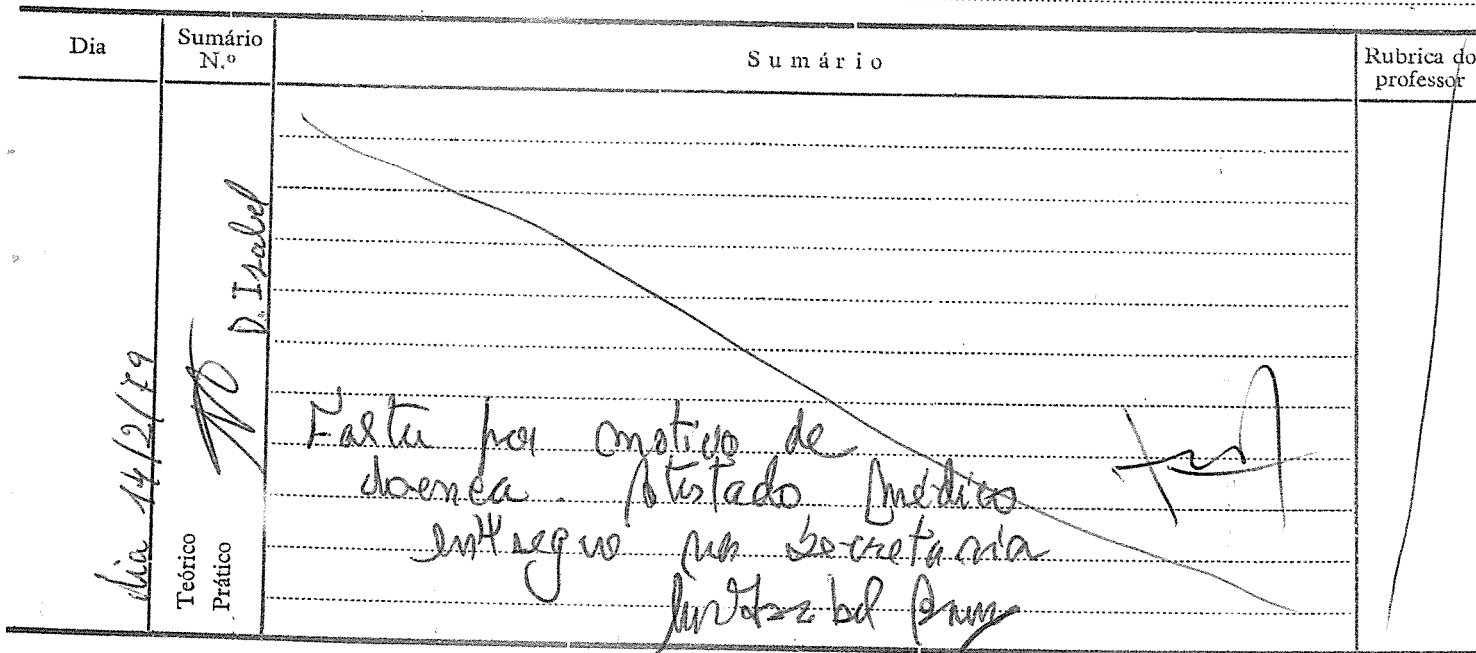 Dia
Sumário N.º
Sumário
Rubrica do professor
dia 14/2/79
D. Isabel
Teórico
Prático
Falta por motivo de
doença. Atestado médico
entregue na secretaria